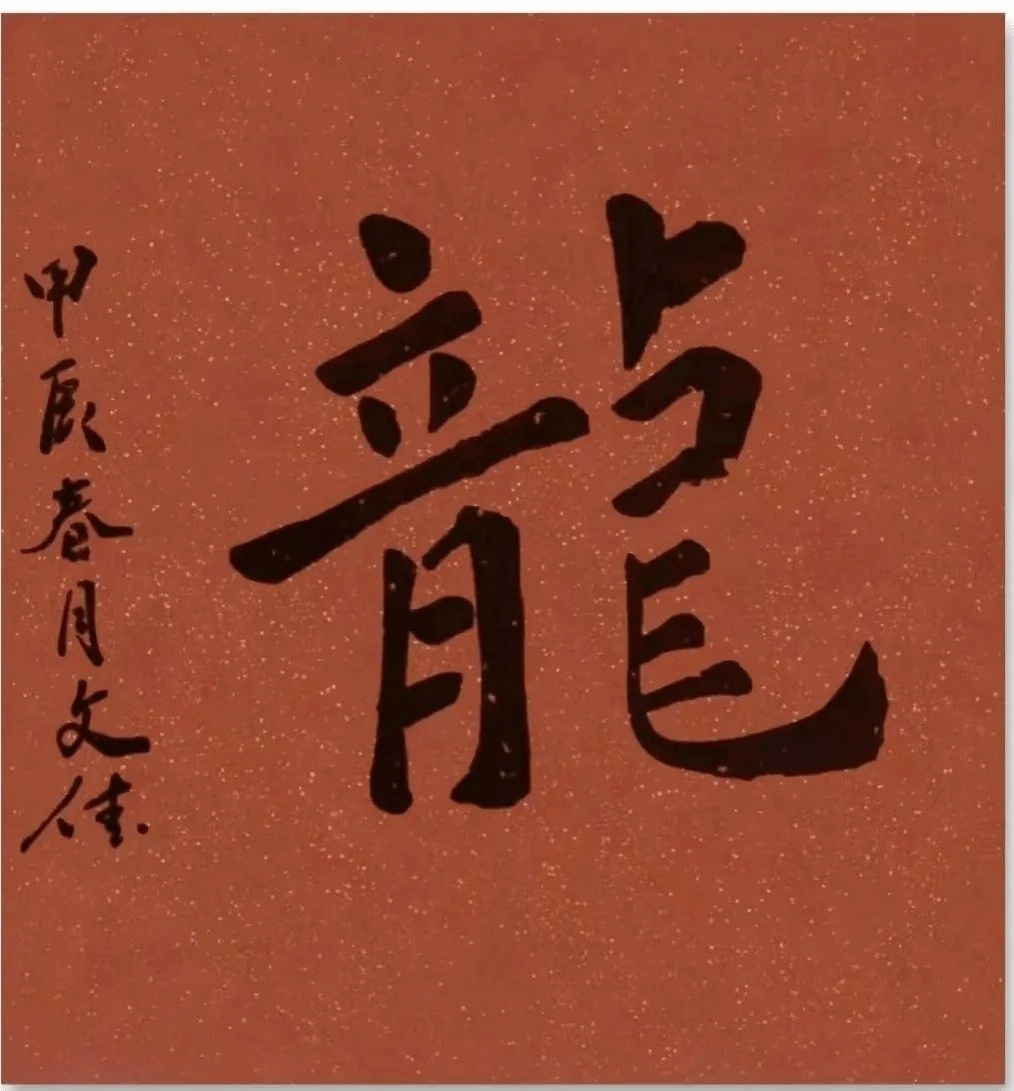 龍
甲辰春月文佳